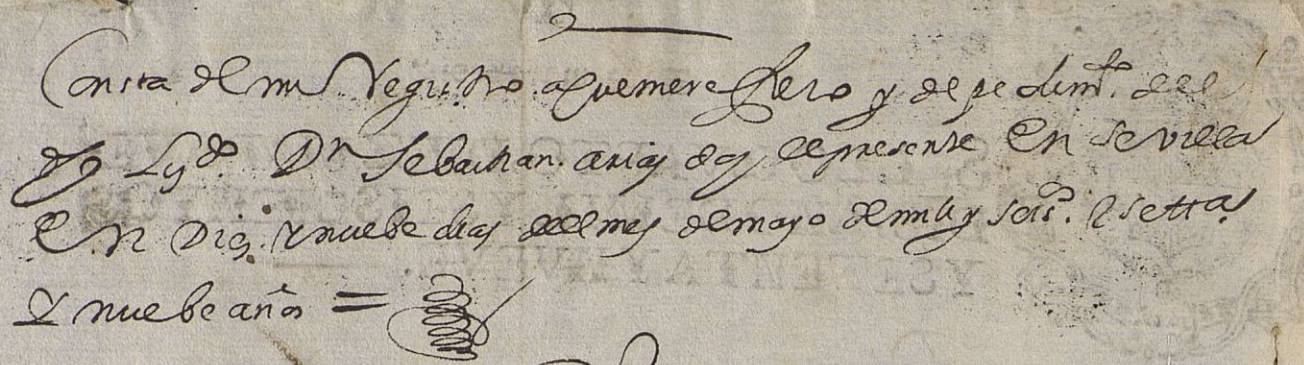 Consta de mi Registro a que me refiero y de pedimto. del
dho Lyzdo. Dn Sebastian. arias doy el presente En Sevilla
En Diez. y nuebe dias del mes de mayo de mill y seisos. y setta
y nuebe años =